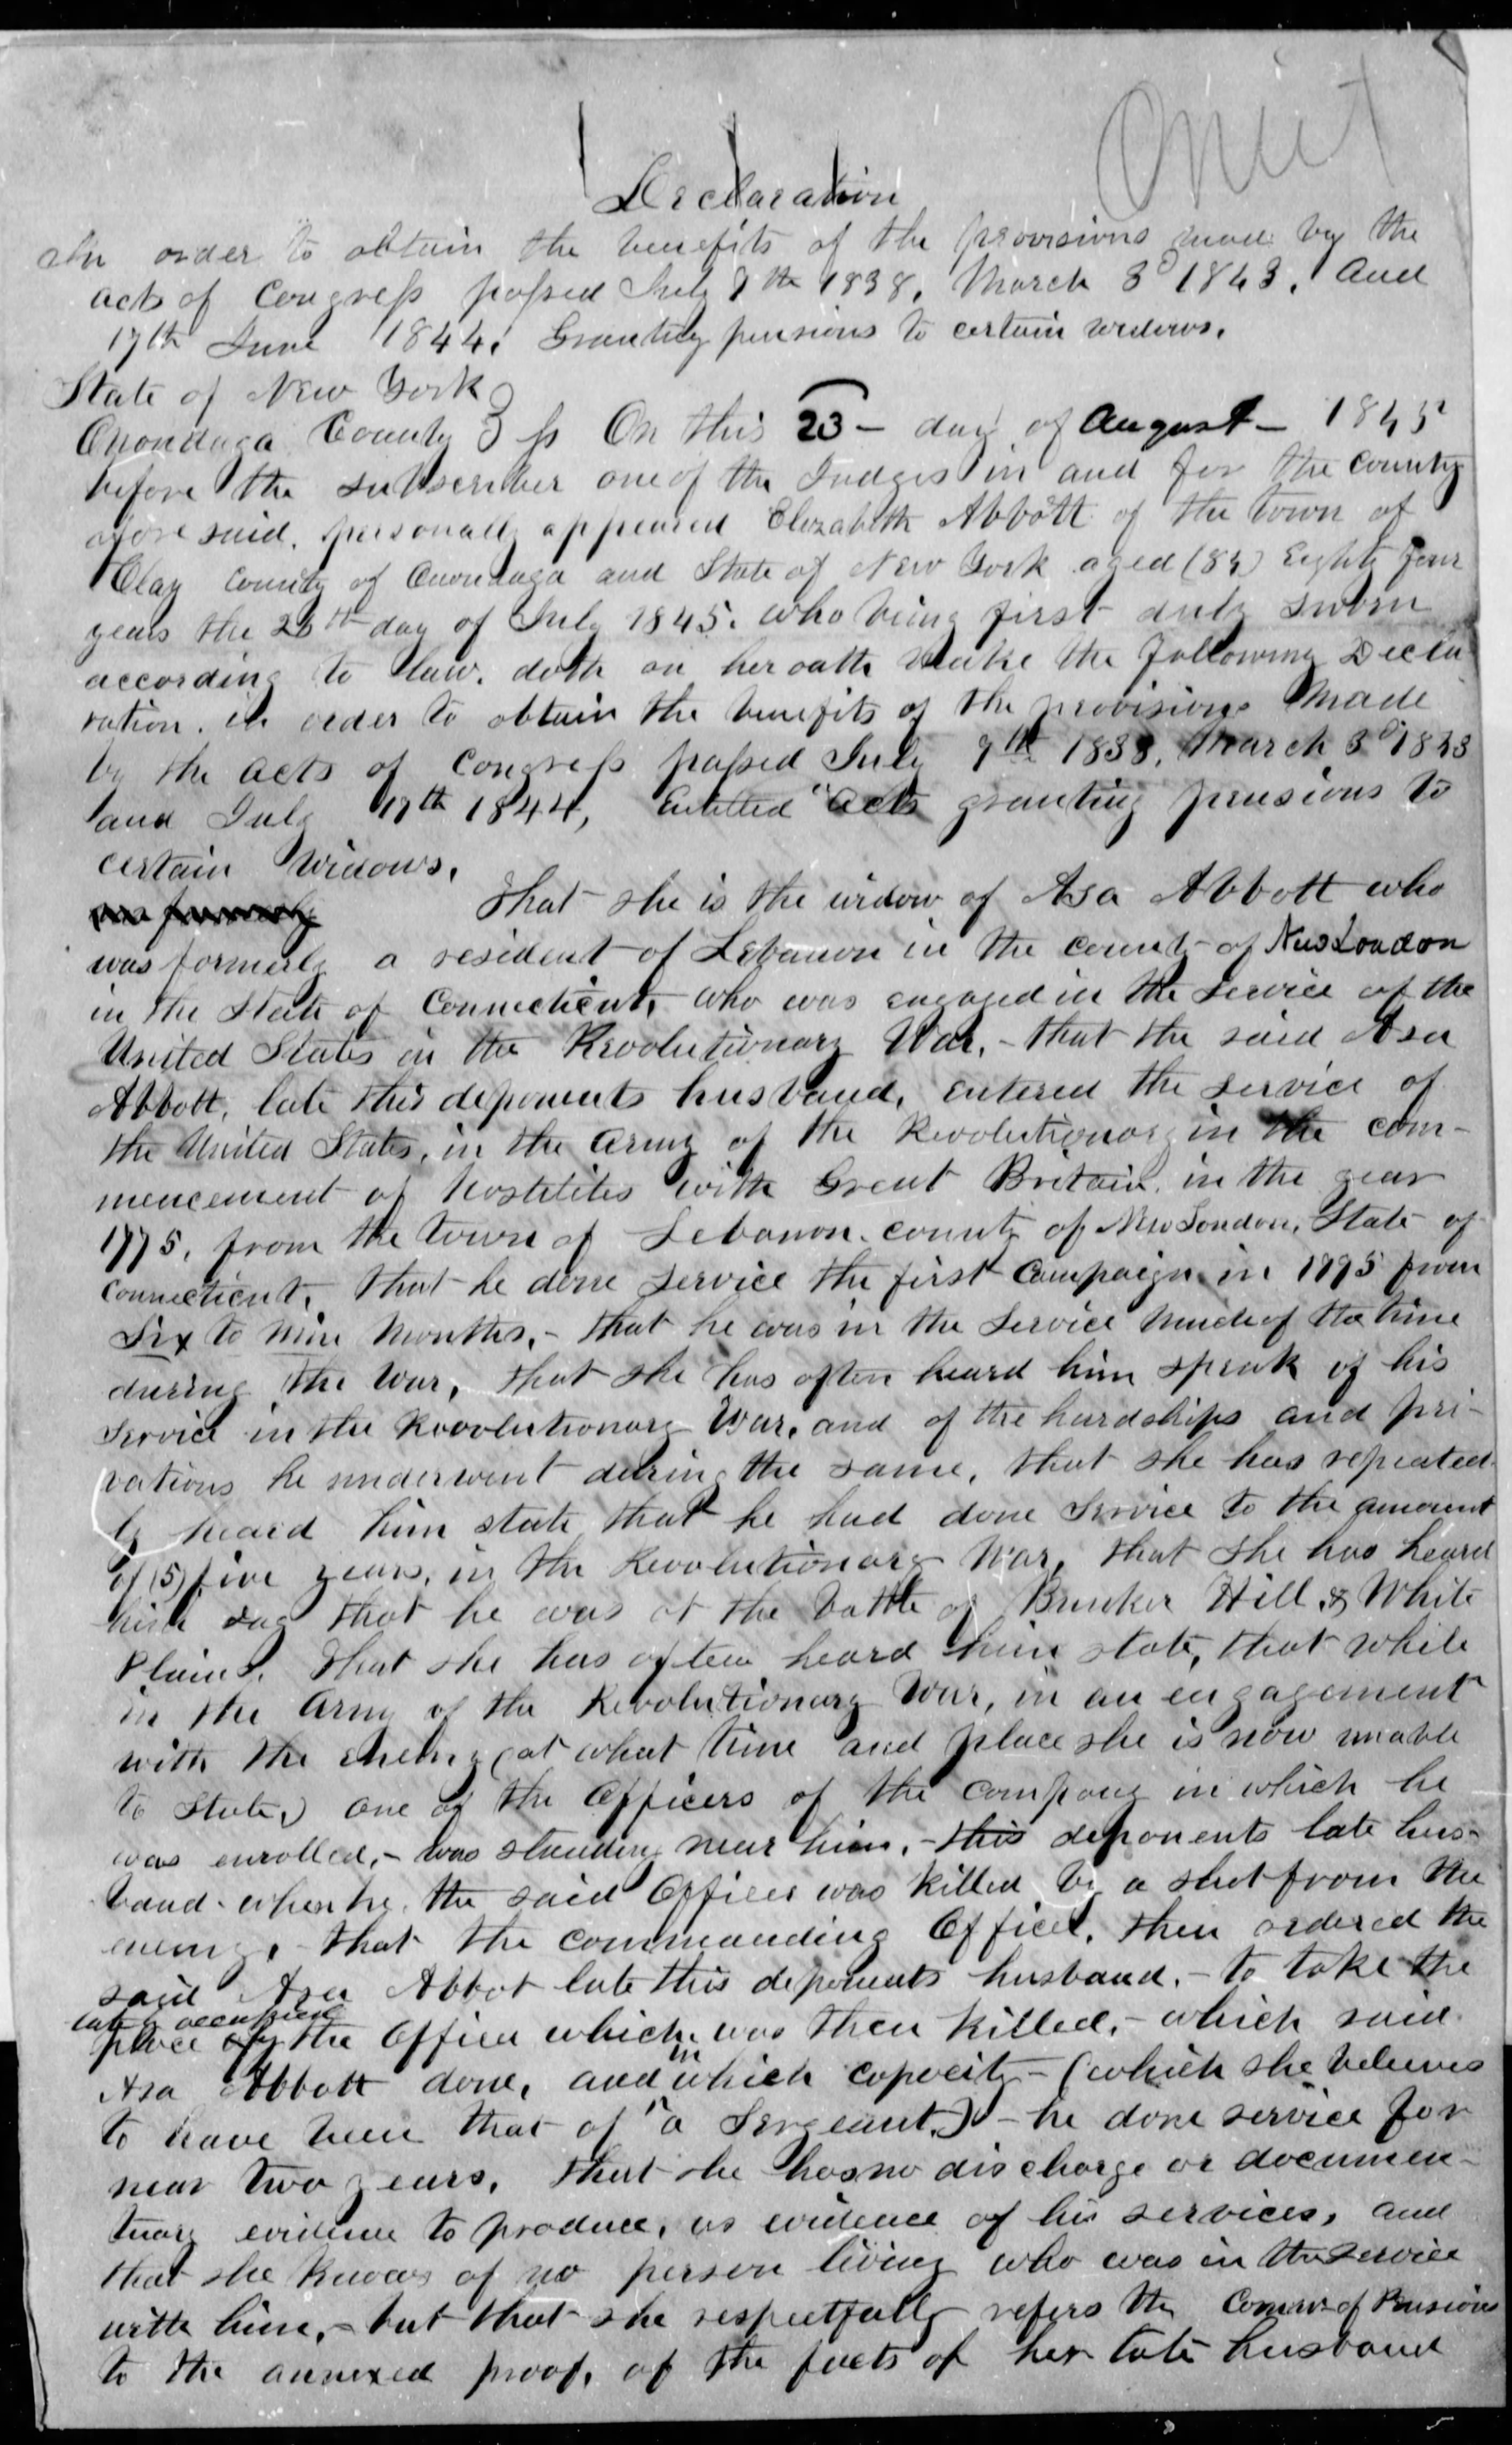 Omit
Declaration
In order to obtain the benefits of the provisions made by the
acts of Congress passed July 7th 1838, March 3d 1843, and
17th June 1844, Granting pensions to certain widows.
State of New York
Onondaga County } ss On this 23 - day of August - 1845
before the subscriber one of the Judges in and for the county
afore said, personally appeared Elizabeth Abbott of the town of
Clay county of Onondaga and State of New York aged (84) Eighty four
years the 26th day of July 1845. who being first duly sworn
according to law, doth on her oath make the following Decla
ration, in order to obtain the benefits of the provisions Made
by the acts of Congress passed July 7th 1838, March 3d 1843
and July 17th 1844, Entitled "acts granting pensions to
certain Widows.
That she is the widow of Asa Abbott who
was formerly a resident of Lebanon in the county of New London
in the State of Connecticut, who was engaged in the service of the
United States in the Revolutionary War, - that the said Asa
Abbott, late this deponents husband, entered the service of
the United States, in the Army of the Revolutionary in the com-
mencement of hostilites with Great Britain, in the year
1775, from the town of Lebanon county of New London, State of
Connecticut, that he done service the first Campaign in 1775 from
Six to nine Months, - that he was in the service much of the time
during the War, that she has often heard him speak of his
service in the Revolutionary War, and of the hardships and pri-
vations he underwent during the same, that she has repeated-
ly heard him state that he had done service to the amount
of (5) five years, in the Revolutionary War, that she has heard
him say that he was at the battle of Bunker Hill & White
Plains. That she has often heard him state, that while
in the Army of the Revolutionary War, in an engagement
with the enemy (at what time and place she is now unable
to state,) one of the Officers of the company in which he
was enrolled, - was standing near him, - this deponents late hus-
band - when he, the said Officer was killed by a shot from the
enemy, - that the commanding Officer, then ordered the
said Asa Abbot late this deponents husband, - to take the
occupied
place by the Officer which was then killed, - which said
Asa Abbott done, and in which capacity - (which she believes
to have been that of "a Sergeant,) - he done service for
near two years. That she has no discharge or documen-
tary evidence to produce, as evidence of his services, and
that she knows of no person living who was in the service
with him, - but that she respectfully refers the Commr of Pensions
to the annexed proof, of the facts of her late husband